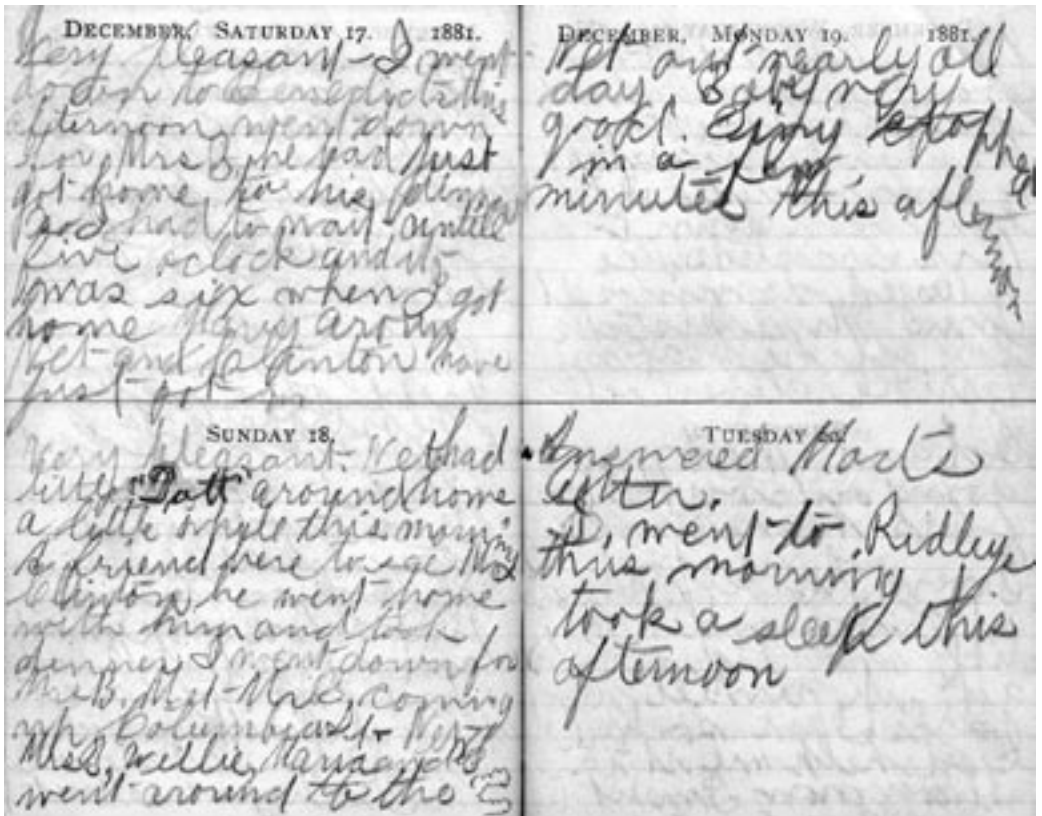 DECEMBER, SATURDAY 17. 1881.
Very pleasant - I went
down to Benedicts this
afternoon, went down
for Mrs B, he had just
got home to his dinner
had to wait untill
five oclock and it
was six when I got
home
Net and Clinton have
just got in
SUNDAY 18.
Very pleasant. Net had
little "Patt" around home
a little while this morning
A friend here to see Mr
Clinton he went home
with him and took
dinner I went down for
Mr B, Met Mr B, coming
up Columbia St. Net
Mrs B, Willie, Maria and
went around to the
DECEMBER, MONDAY 19. 1881.
Net out nearly all
day. Baby very
good. stopped
in a few
minutes this afternoon
TUESDAY 20.
Answered
letter.
B, went to Ridleys
this morning
took a sleep this
afternoon